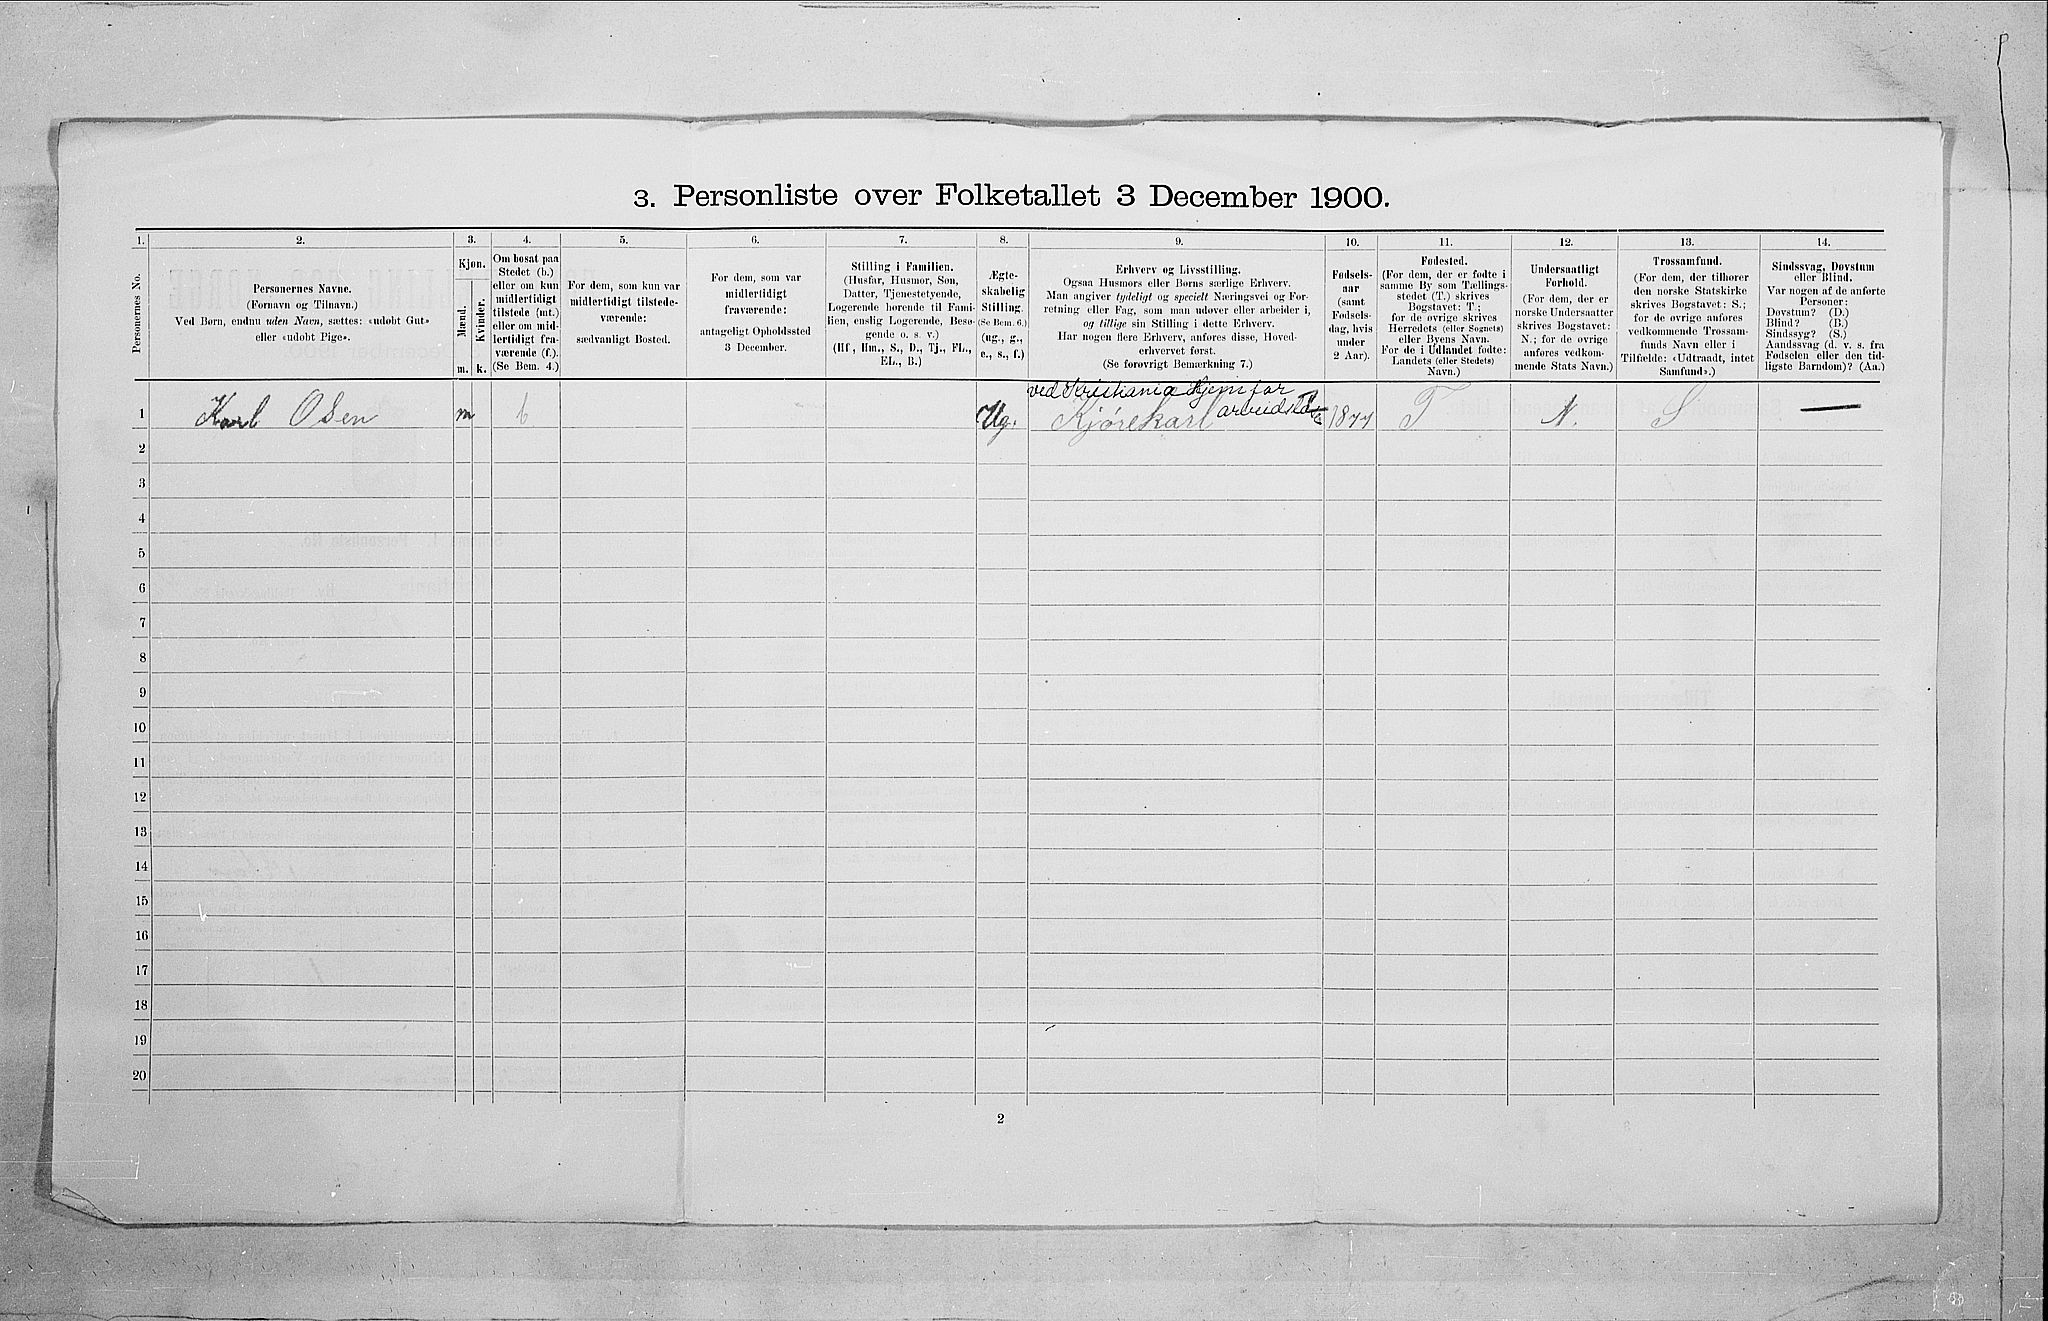 3. Personliste over Folketallet 3 December 1900.
1. 2. 3. 4. 5. 6. 7. 8. 9. 10. 11. 12. 13. 14.
Personernes No.
Personernes Navne.
(Fornavn og Tilnavn.)
Ved Børn, endnu uden Navn, sættes: «udøbt Gut»
eller «udøbt Pige».
Kjøn.
Mænd.
Kvinder.
m. k.
Om bosat paa
Stedet (b.)
eller om kun
midlertidigt
tilstede (mt.)
eller om mid-
lertidigt fra-
værende (f.).
(Se Bem. 4.)
For dem, som kun var
midlertidigt tilstede-
værende:
sædvanligt Bosted.
For dem, som var
midlertidigt
fraværende:
antageligt Opholdssted
3 December.
Stilling i Familien.
(Husfar, Husmor, Søn,
Datter, Tjenestetyende,
Logerende hørende til Fami-
lien, enslig Logerende, Besø-
gende o. s. v.)
(Hf, Hm., S., D., Tj., FL.,
EL., B.)
Ægte-
skabelig
Stilling.
(Se Bem. 6.)
(ug., g.,
e., s., f.)
Erhverv og Livsstilling.
Ogsaa Husmors eller Børns særlige Erhverv.
Man angiver tydeligt og specielt Næringsvei og For-
retning eller Fag, som man udøver eller arbeider i,
og tillige sin Stilling i dette Erhverv.
Har nogen flere Erhverv, anføres disse, Hoved-
erhvervet først.
(Se forøvrigt Bemærkning 7.)
Fødsels-
aar
(samt
Fødsels-
dag, hvis
under
2 Aar).
Fødested.
(For dem, der er fødte i
samme By som Tællings-
stedet (T.) skrives
Bogstavet: T.;
for de øvrige skrives
Herredets (eller Sognets)
eller Byens Navn.
For de i Udlandet fødte:
Landets (eller Stedets)
Navn.)
Undersaatligt
Forhold.
(For dem, der er
norske Undersaatter
skrives Bogstavet:
N.; for de øvrige
anføres vedkom-
mende Stats Navn.)
Trossamfund.
(For dem, der tilhører
den norske Statskirke
skrives Bogstavet: S.;
for de øvrige anføres
vedkommende Trossam-
funds Navn eller i
Tilfælde: «Udtraadt, intet
Samfund».)
Sindssvag, Døvstum
eller Blind.
Var nogen af de anførte
Personer:
Døvstum? (D.)
Blind? (B.)
Sindssyg? (S.)
Aandssvag (d. v. s. fra
Fødselen eller den tid-
ligste Barndom)? (Aa.)
ved Kristiania Hjem for
1 Karl Osen m b Ug. Kjørekarl 1877 T N. S —
2
3
4
5
6
7
8
9
10
11
12
13
14
15
16
17
18
19
20
2